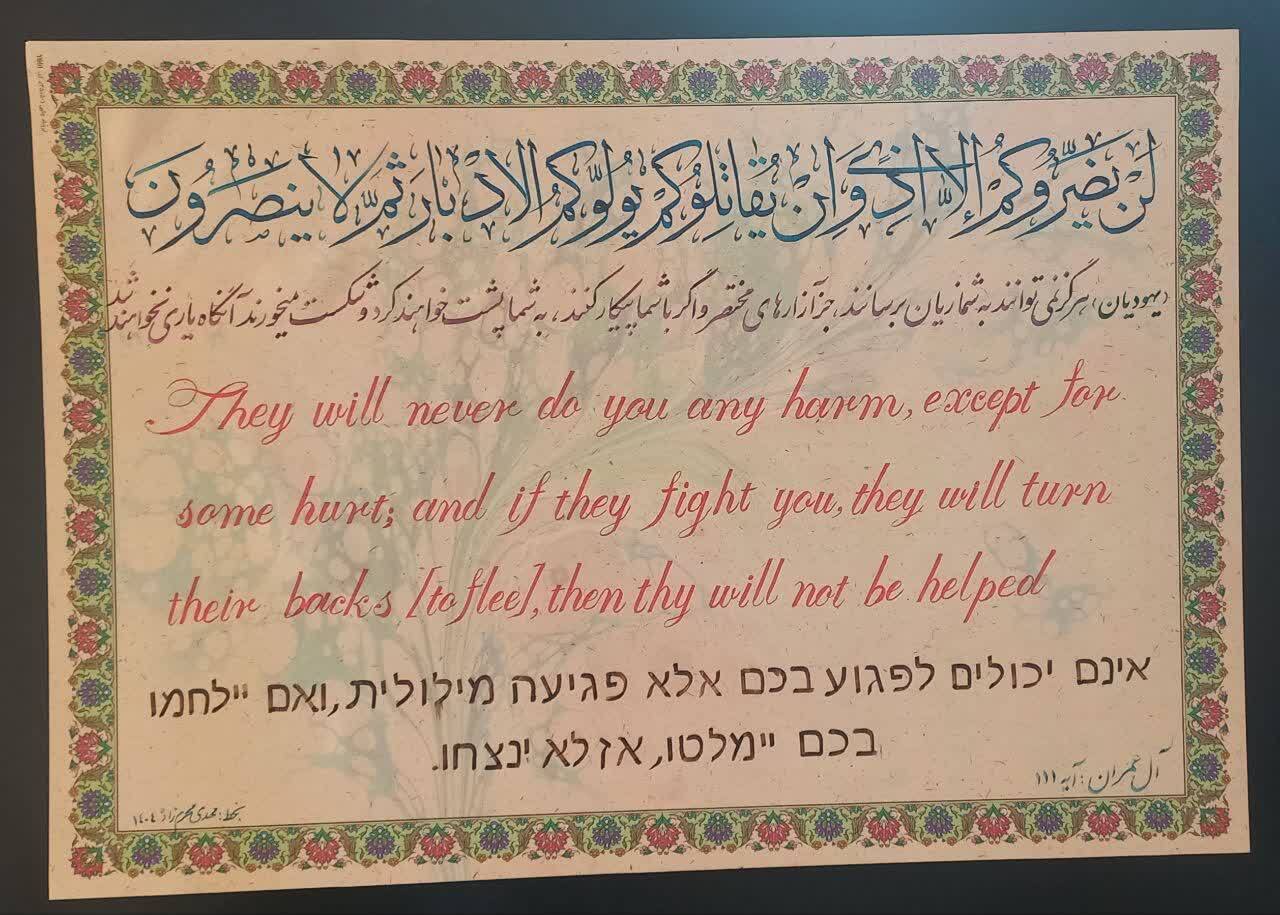 لَنْ يَضُرُّوكُمْ إِلَّا أَذًى وَإِنْ يُقَاتِلُوكُمْ يُوَلُّوكُمُ الْأَدْبَارَ ثُمَّ لَا يُنْصَرُونَ
(یهودیان) هرگز نمی توانند به شما زیان برسانند، جز آزارهای مختصر و اگر با شما پیکار کنند، به شما پشت خواهند کرد و شکست میخورند آنگاه یاری نخواهند شد
They will never do you any harm, except for
some hurt; and if they fight you, they will turn
their backs [to flee], then thy will not be helped
אינם יכולים לפגוע בכם אלא פגיעה מילולית, ואם יילחמו
בכם יימלטו, אז לא ינצחו.
آل عمران: آیه ۱۱۱
بخط: مهدی محرم زاد ۱۴۰۴